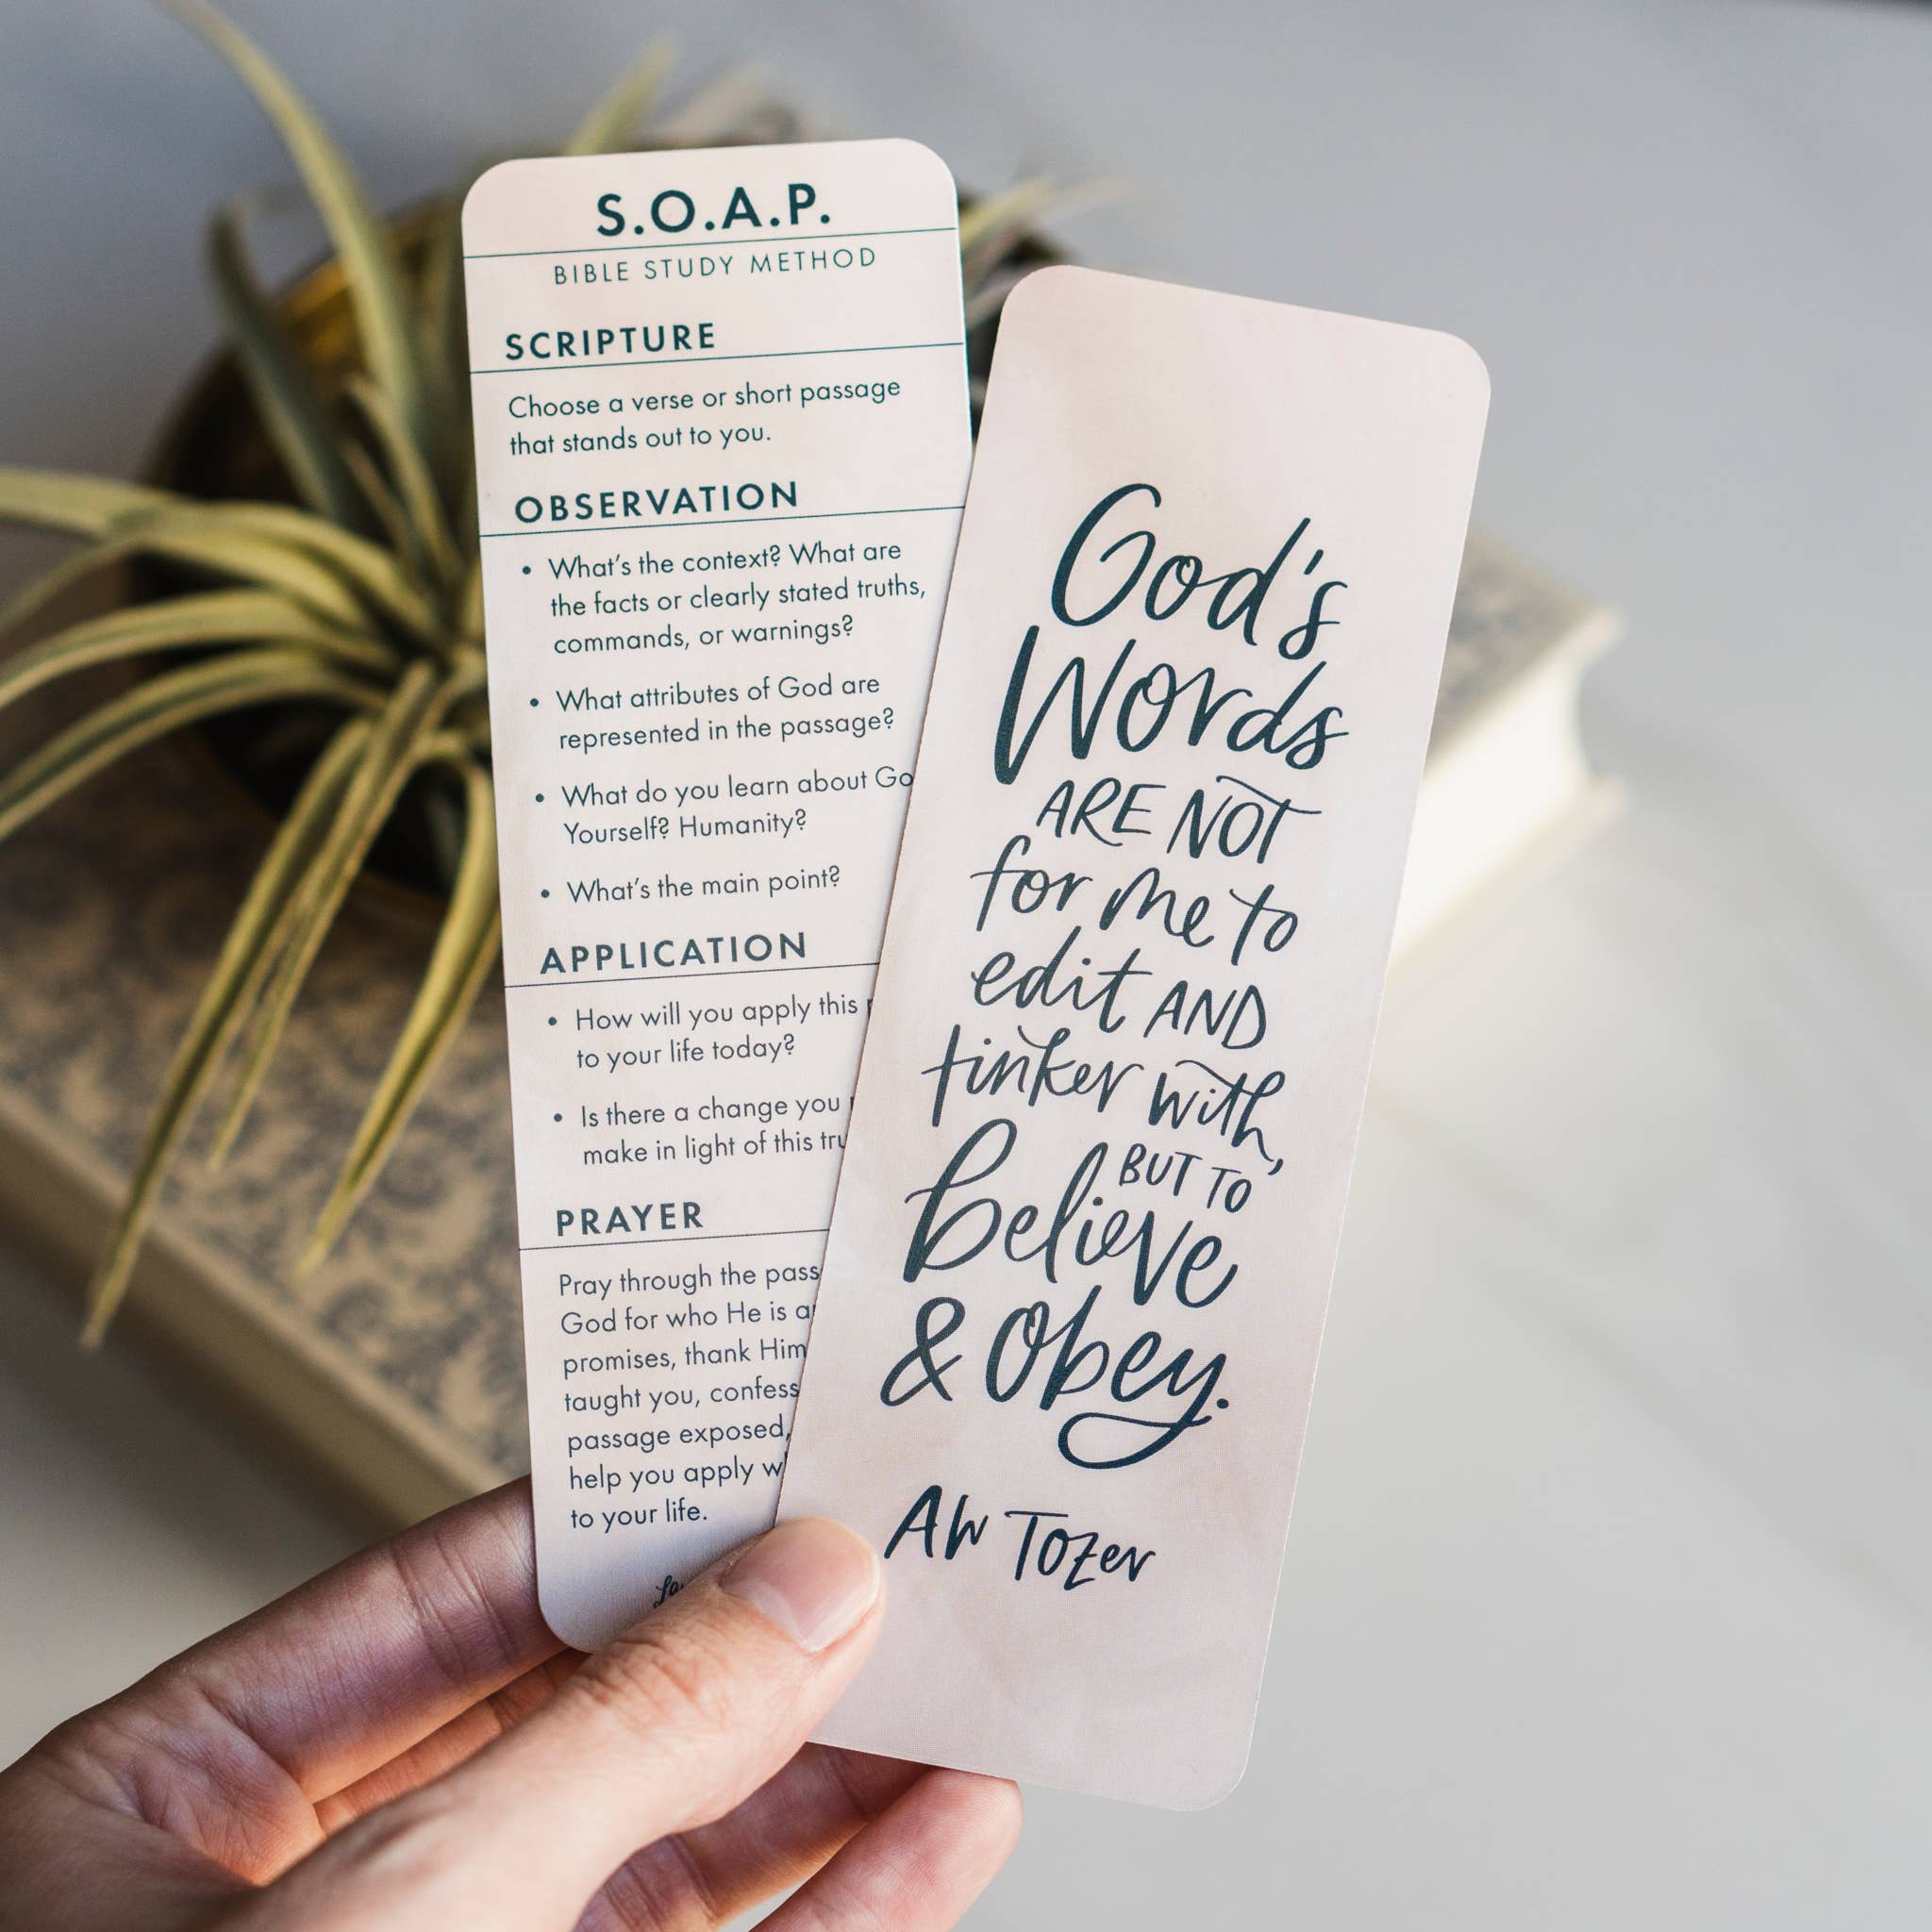 S.O.A.P.
BIBLE STUDY METHOD
SCRIPTURE
Choose a verse or short passage
that stands out to you.
OBSERVATION
• What's the context? What are
the facts or clearly stated truths,
commands, or warnings?
• What attributes of God are
represented in the passage?
• What do you learn about
Yourself? Humanity?
• What's the main point?
APPLICATION
• How will you apply this
to your life today?
• Is there a change you
make in light of this
PRAYER
Pray through the
God for who He is
promises, thank Him
taught you, confess
passage exposed,
help you apply
to your life.
God's
Words
ARE NOT
for me to
edit AND
tinker with,
BUT TO
believe
& obey.
AW Tozer